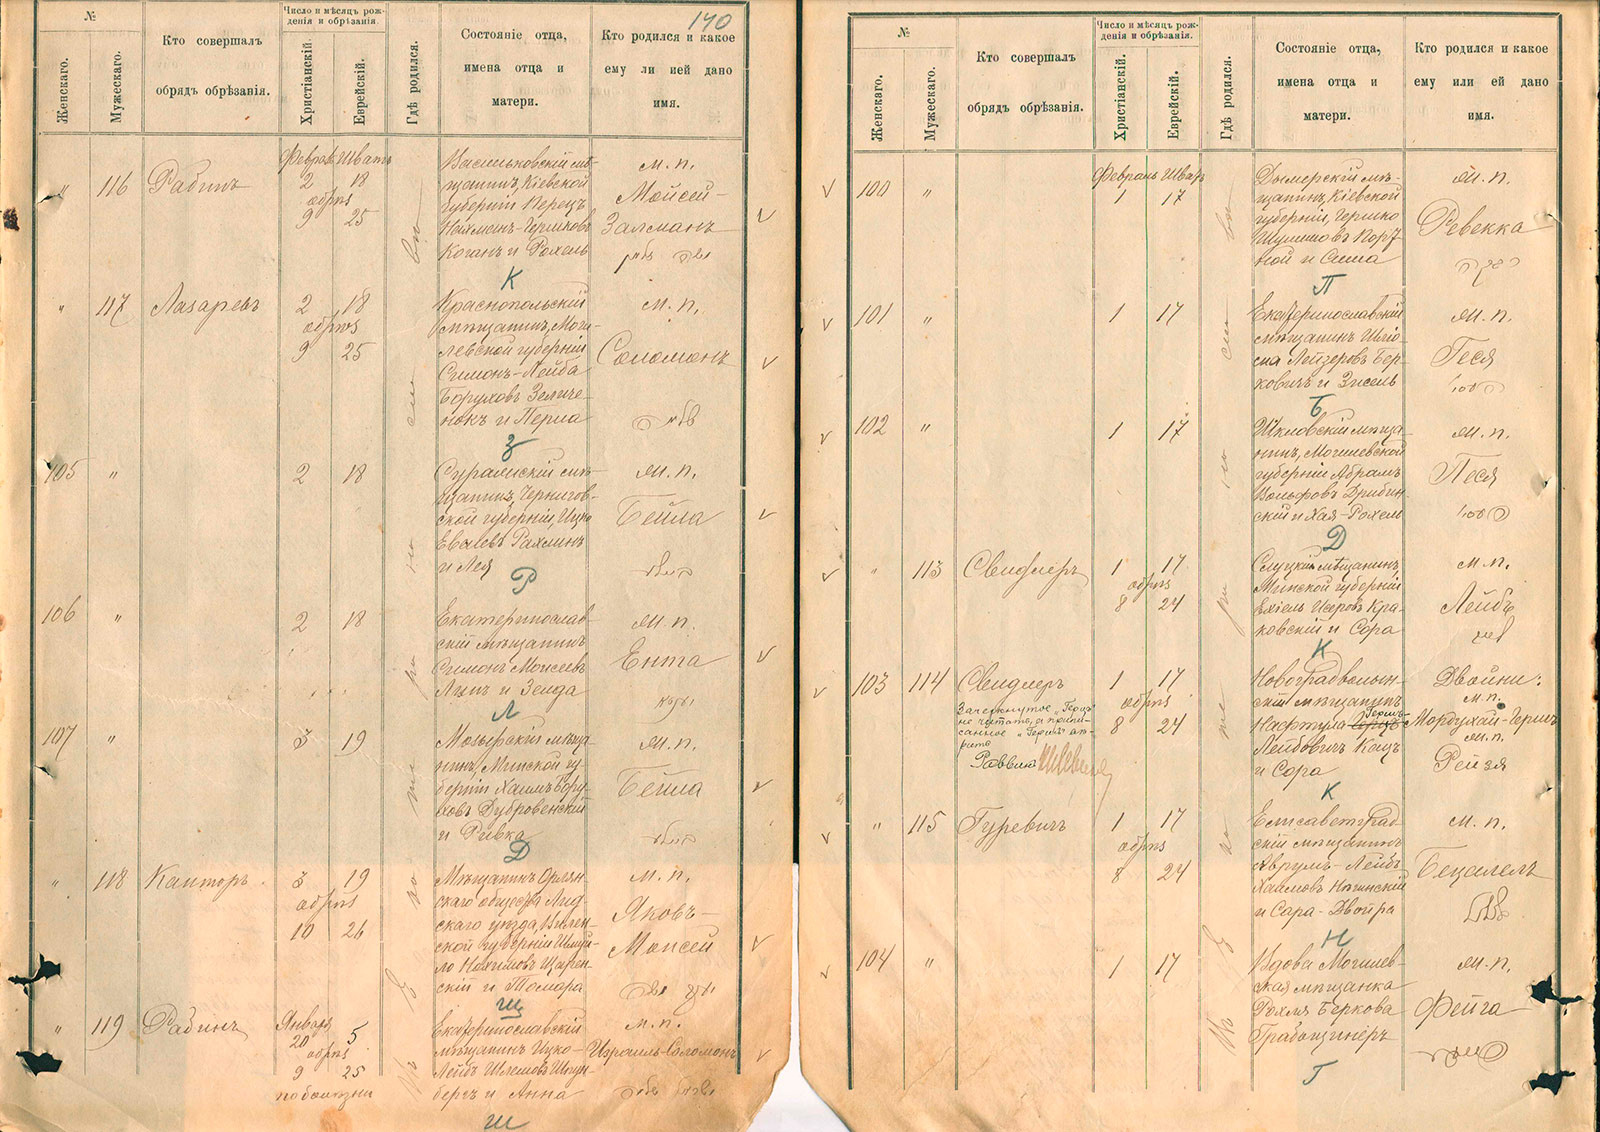 140
№
Женскаго.
Мужескаго.
Кто совершалъ
обрядъ обрѣзанія.
Число и мѣсяцъ рож-
денія и обрѣзанія.
Христіанскій.
Еврейскій.
Гдѣ родился.
Состояніе отца,
имена отца и
матери.
Кто родился и какое
ему ли ией дано
имя.
" 116 Рабинъ
Февраль Шватъ
2 18
обрѣз
9 25
Васильковскій мѣ-
щанинъ, Кіевской
губерніи Перецъ
Нахманъ-Гершковъ
Коганъ и Рохель
К
м. п.
Мойсей-
Залманъ
" 117 Лазаревъ
2 18
обрѣз
9 25
Краснопольскій
мѣщанинъ, Моги-
левской губерніи
Симонъ-Лейба
Боруховъ Зеличе-
нокъ и Перла
З
м. п.
Соломонъ
105 "
2 18
Суражскій мѣ-
щанинъ, Чернигов-
ской губерніи, Ицко
Рахлинъ
и Лея
Р
м. п.
Бейла
106 "
2 18
Екатеринослав-
скій мѣщанинъ
Симонъ Моисеевъ
и Зелда
Л
м. п.
Ента
107 "
3 19
Мозырскій мѣща-
нинъ, Минской гу-
берніи Хаимъ Бору-
ховъ Дубровенскій
и Ривка
Д
м. п.
Бейла
" 118 Канторъ
3 19
обрѣз
10 26
Мѣщанинъ Орлян-
скаго общества Лид-
скаго уѣзда, Вилен-
ской губерніи Шмуй-
ло Нохимовъ Щарен-
скій и Томара
Щ
м. п.
Яковъ-
Моисей
" 119 Рабинъ
Января
20 5
обрѣз
9 25
по болѣзни
Екатеринославскій
мѣщанинъ Ицко-
Лейбъ Шлемовъ
бергъ и Анна
Ш
м. п.
Израиль-Соломонъ
№
Женскаго.
Мужескаго.
Кто совершалъ
обрядъ обрѣзанія.
Число и мѣсяцъ рож-
денія и обрѣзанія.
Христіанскій.
Еврейскій.
Гдѣ родился.
Состояніе отца,
имена отца и
матери.
Кто родился и какое
ему или ей дано
имя.
100 "
Февраль Шватъ
1 17
Дымерскій мѣ-
щанинъ, Кіевской
губерніи, Гершко
Шулимовъ Порт-
ной и Сима
П
м. п.
Ревекка
101 "
1 17
Екатеринославскій
мѣщанинъ
Лейзеровъ Бер-
ковичъ и Зисель
Б
м. п.
Геся
102 "
1 17
Шкловскій мѣща-
нинъ, Могилевской
губерніи Абрамъ
Вольфовъ Дрибин-
скій и Хая-Рохель
Д
м. п.
Песя
" 113 Свидлеръ
1 17
обрѣз
8 24
Слуцкій мѣщанинъ
Минской губерніи
Ехіель Исеровъ Кра-
ковскій и Сора
К
м. п.
Лейбъ
103 114 Свидлеръ
Зачеркнутое „Герцъ"
не читать, а припи-
санное „Гершъ" вѣ-
рить
Раввинъ
1 17
обрѣз
8 24
Новоградволын-
скій мѣщанинъ
Гершъ-
Нафтула Герцъ
Лейбовичъ Кацъ
и Сора
К
Двойни:
м. п.
Мордухай-Гершъ
м. п.
Рейзя
" 115 Гуревичъ
1 17
обрѣз
8 24
Елисаветград-
скій мѣщанинъ
Аврумъ-Лейбъ
Хаимовъ
и Сара-Двойра
Н
м. п.
Бецалель
104 "
1 17
Вдова Могилев-
ская мѣщанка
Рохля Беркова
Г
м. п.
Фейга